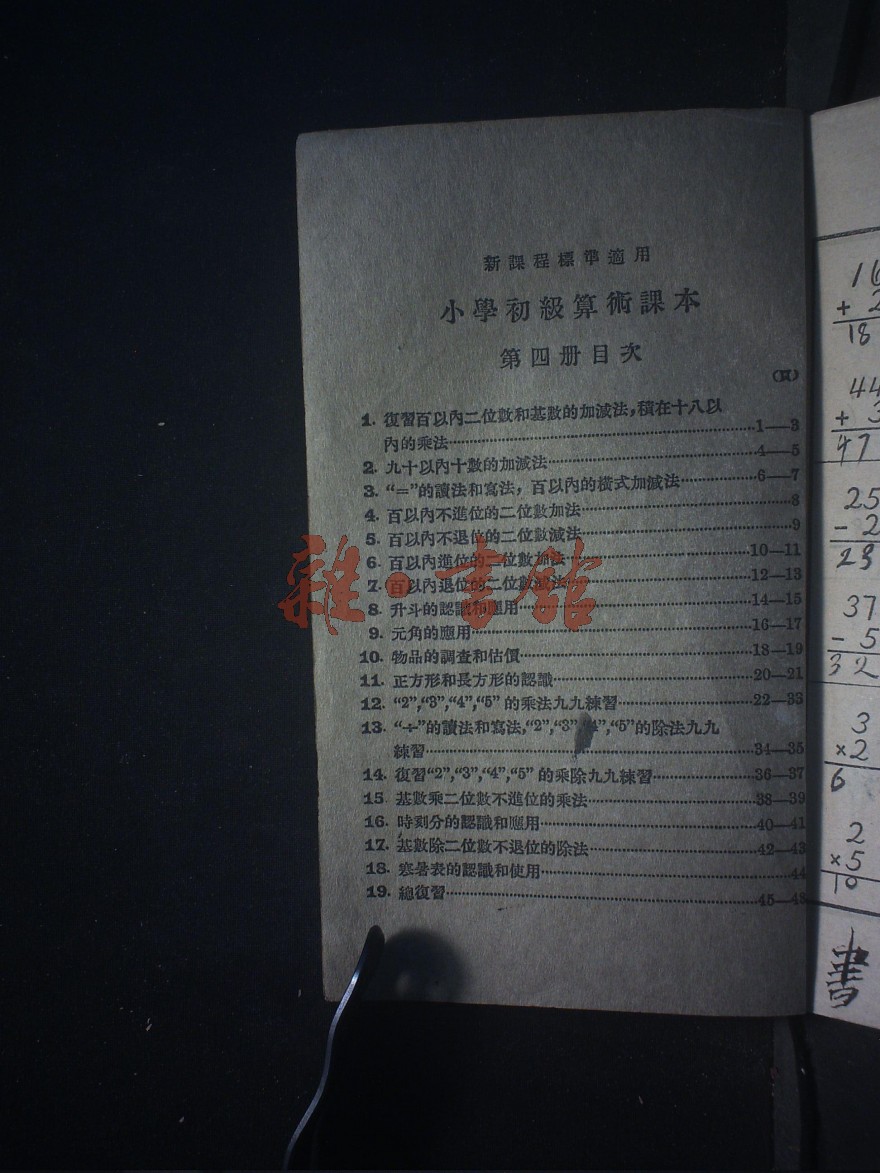 新課程標準適用
小學初級算術課本
第四册目次
(頁)
1. 復習百以內二位數和基數的加減法,積在十八以
內的乘法……1—3
2. 九十以內十數的加減法……4—5
3. “=”的讀法和寫法, 百以內的橫式加減法……6—7
4. 百以內不進位的二位數加法……8
5. 百以內不退位的二位數減法……9
6. 百以內進位的二位數加法……10—11
7. 百以內退位的二位數減法……12—13
8. 升斗的認識和應用……14—15
9. 元角的應用……16—17
10. 物品的調查和估價……18—19
11. 正方形和長方形的認識……20—21
12. “2”,“3”,“4”,“5” 的乘法九九練習……22—33
13. “÷”的讀法和寫法,“2”,“3”,“4”,“5”的除法九九
練習……34—35
14. 復習“2”,“3”,“4”,“5” 的乘除九九練習……36—37
15. 基數乘二位數不進位的乘法……38—39
16. 時刻分的認識和應用……40—41
17. 基數除二位數不退位的除法……42—43
18. 寒暑表的認識和使用……44
19. 總復習……45—48
雜·書館
16
+ 2
18
44
+ 3
47
25
- 2
23
37
- 5
32
3
×2
6
2
×5
10
書